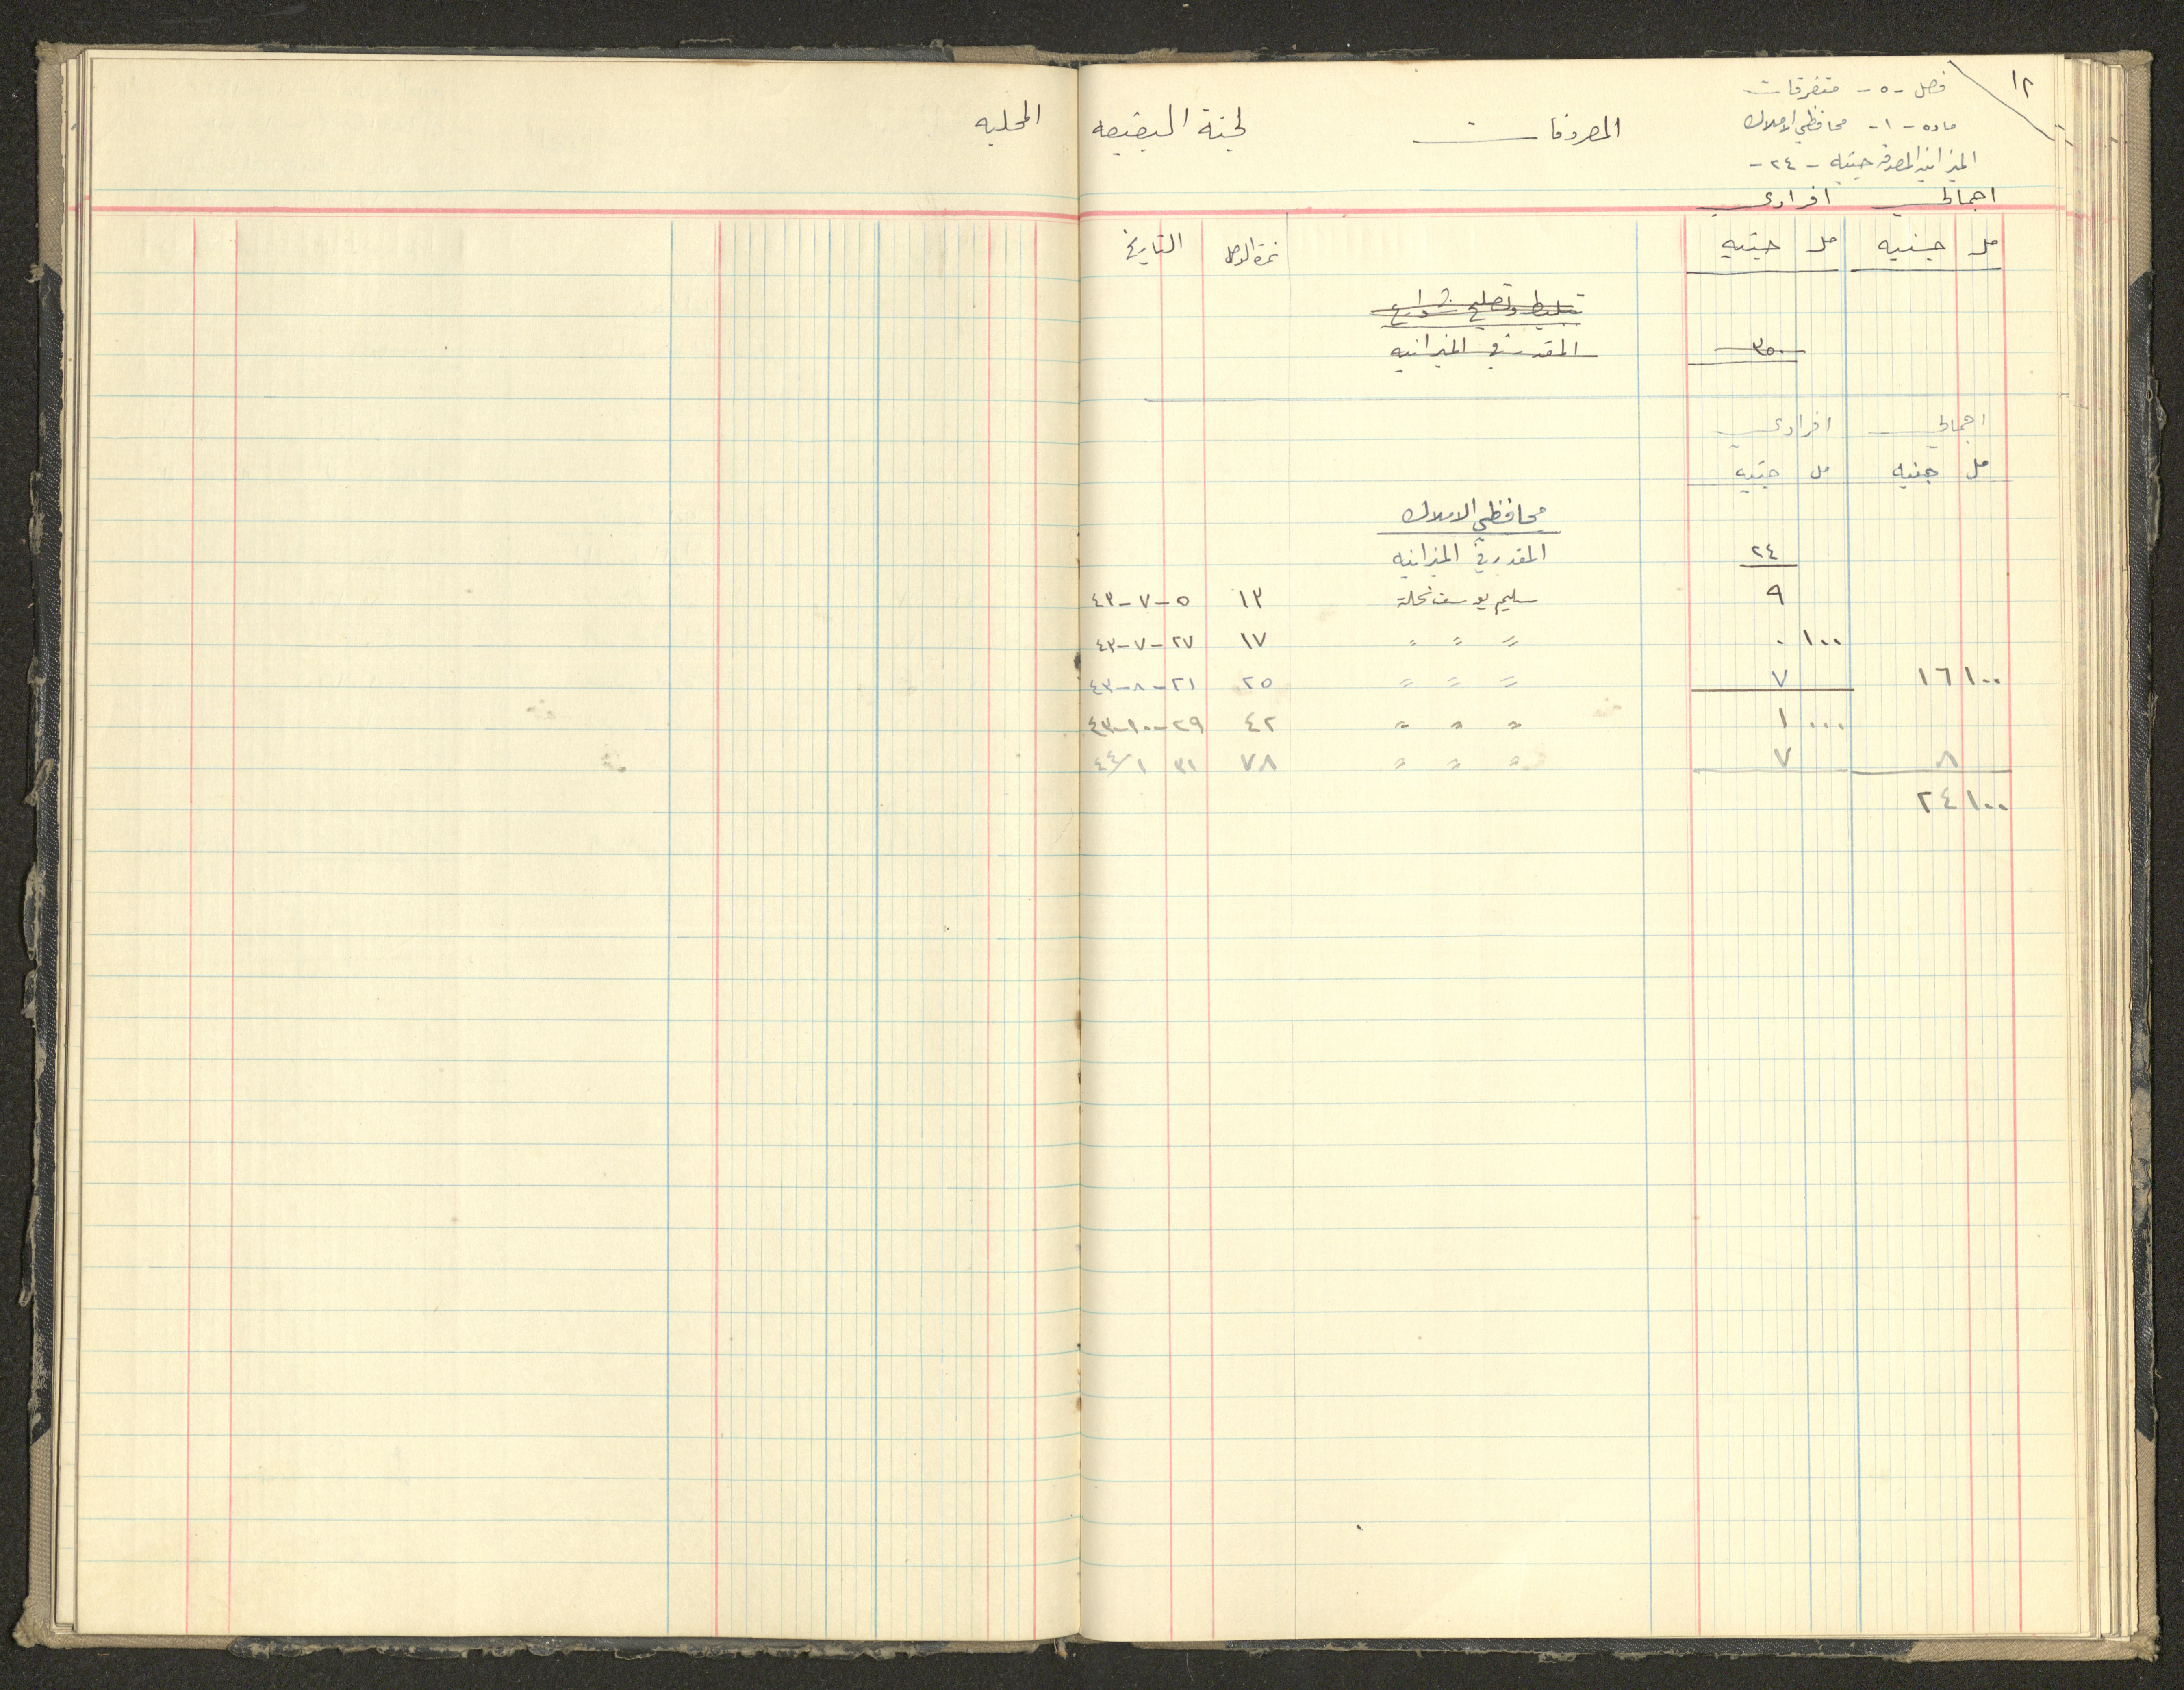 ١٢
فصل - ٥ - متفرقات
ماده - ١ - محافظي الاملاك
الميزانيه المصدقه جنيه - ٢٤ -
المصروفات لجنة البقيعه المحليه
اجمالي افرادي
مل جنيه مل جنيه نمرة الوصل التاريخ
تبليط وتصليح شوارع
٣٥٠ المقدر في الميزانيه
اجمالي افرادي
مل جنيه مل جنيه
محافظي الاملاك
٢٤ المقدر في الميزانيه
٩ سليم يوسف نخلة ١٣ ٥-٧-٤٣
١٠٠ ٠ " " " ١٧ ٢٧-٧-٤٣
١٠٠ ١٦ ٧ " " " ٢٥ ٢١-٨-٤٣
٠٠٠ ١ " " " ٤٢ ٢٩-١٠-٤٣
٨ ٧ " " " ٧٨ ٣١ ١/٤٤
١٠٠ ٢٤